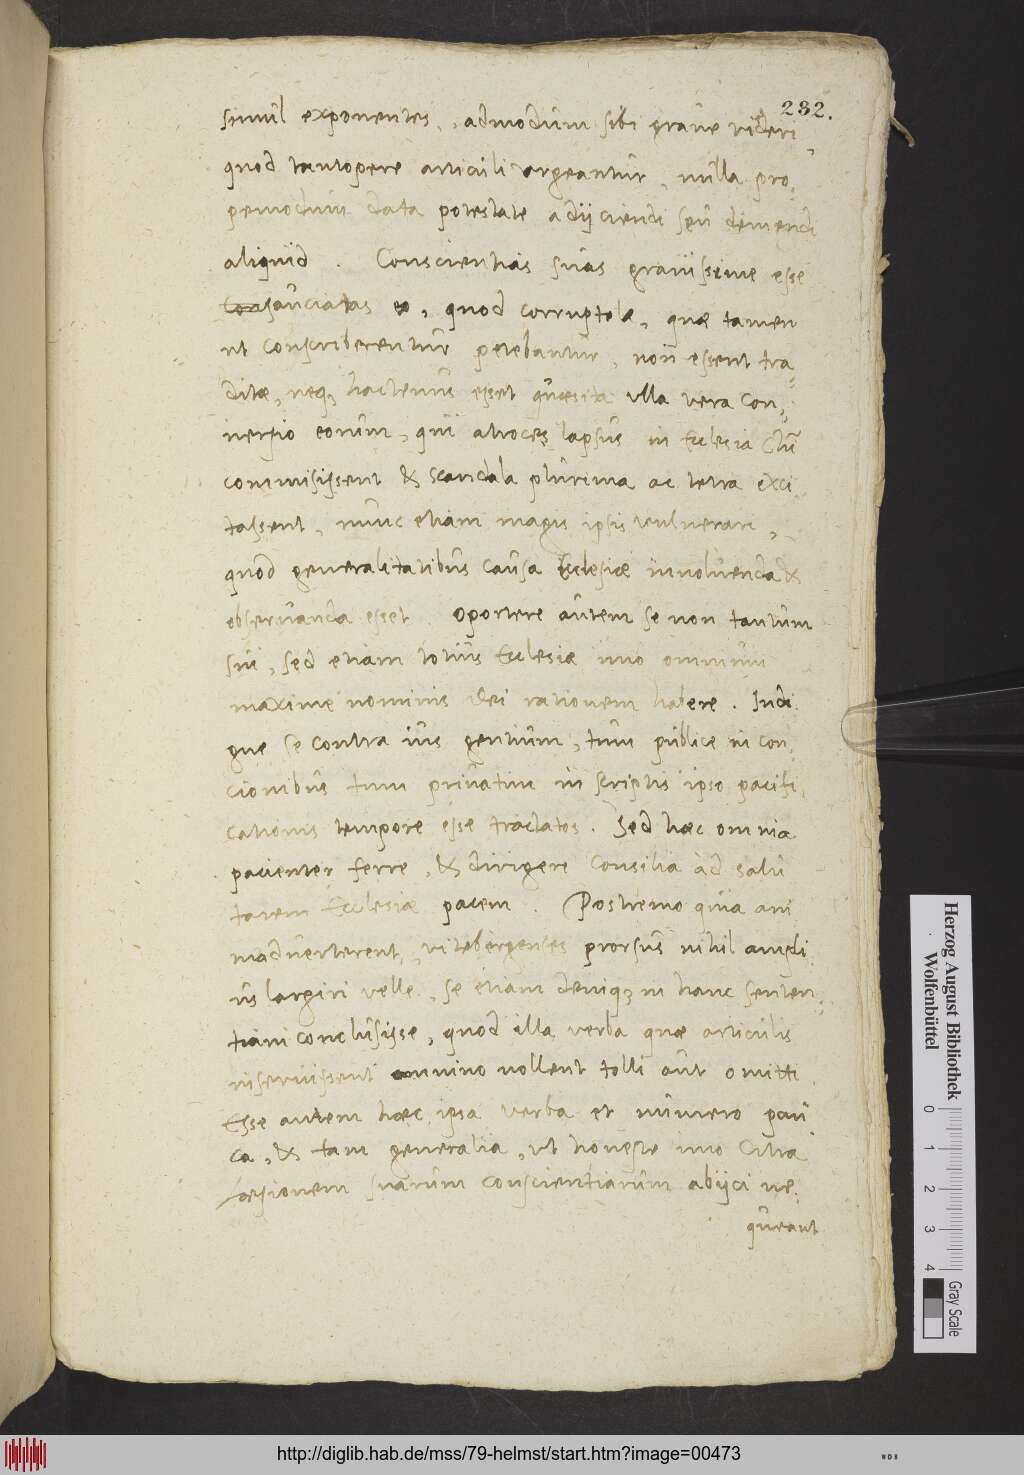 232.
simul exponentes, admodum sibi grave videri
quod tantopere articuli urgeantur, nulla pro,
pemodum data potestate adijciendi seu demendi
aliquid. Conscientias suas gravissime esse
consauciatas eo, quod corruptelæ, quæ tamen
ut conscriberentur petebantur, non essent tra,
ditæ, neq₃ hactenus esset quæsita ulla vera con,
versio eorum, qui atroces lapsus in Ecclesia
commisissent & scandala plurima ac tetra exci
tassent, nunc etiam magis ipsis vulnerari,
quod generalitatibus causa Ecclesiæ involvenda &
observanda esset. Oportere autem se non tantum
sui, sed etiam totius Ecclesiæ imo omnium
maxime nominis Dei rationem habere. Indi
gne se contra ius gentium, tum publice in con,
cionibus tum privatim in scriptis ipso pacifi,
cationis tempore esse tractatos. Sed hæc omnia
pacienter ferre, & dirigere consilia ad salu
tarem Ecclesiæ pacem. Postremo quia ani
madverterent, vitebergenses prorsus nihil ampli
us largiri velle, se etiam deniq₃ in hanc senten,
tiam conclusisse, quod illa verba quæ articulis
inseruissent omnino vollent tolli aut omitti
Esse autem hæc ipsa verba et numero pau
ca, & tam generalia, ut honeste imo citra
læsionem suarum conscientiarum abijci ne,
queant
Herzog August Bibliothek
Wolfenbüttel
0 1 2 3 4
Gray Scale
http://diglib.hab.de/mss/79-helmst/start.htm?image=00473